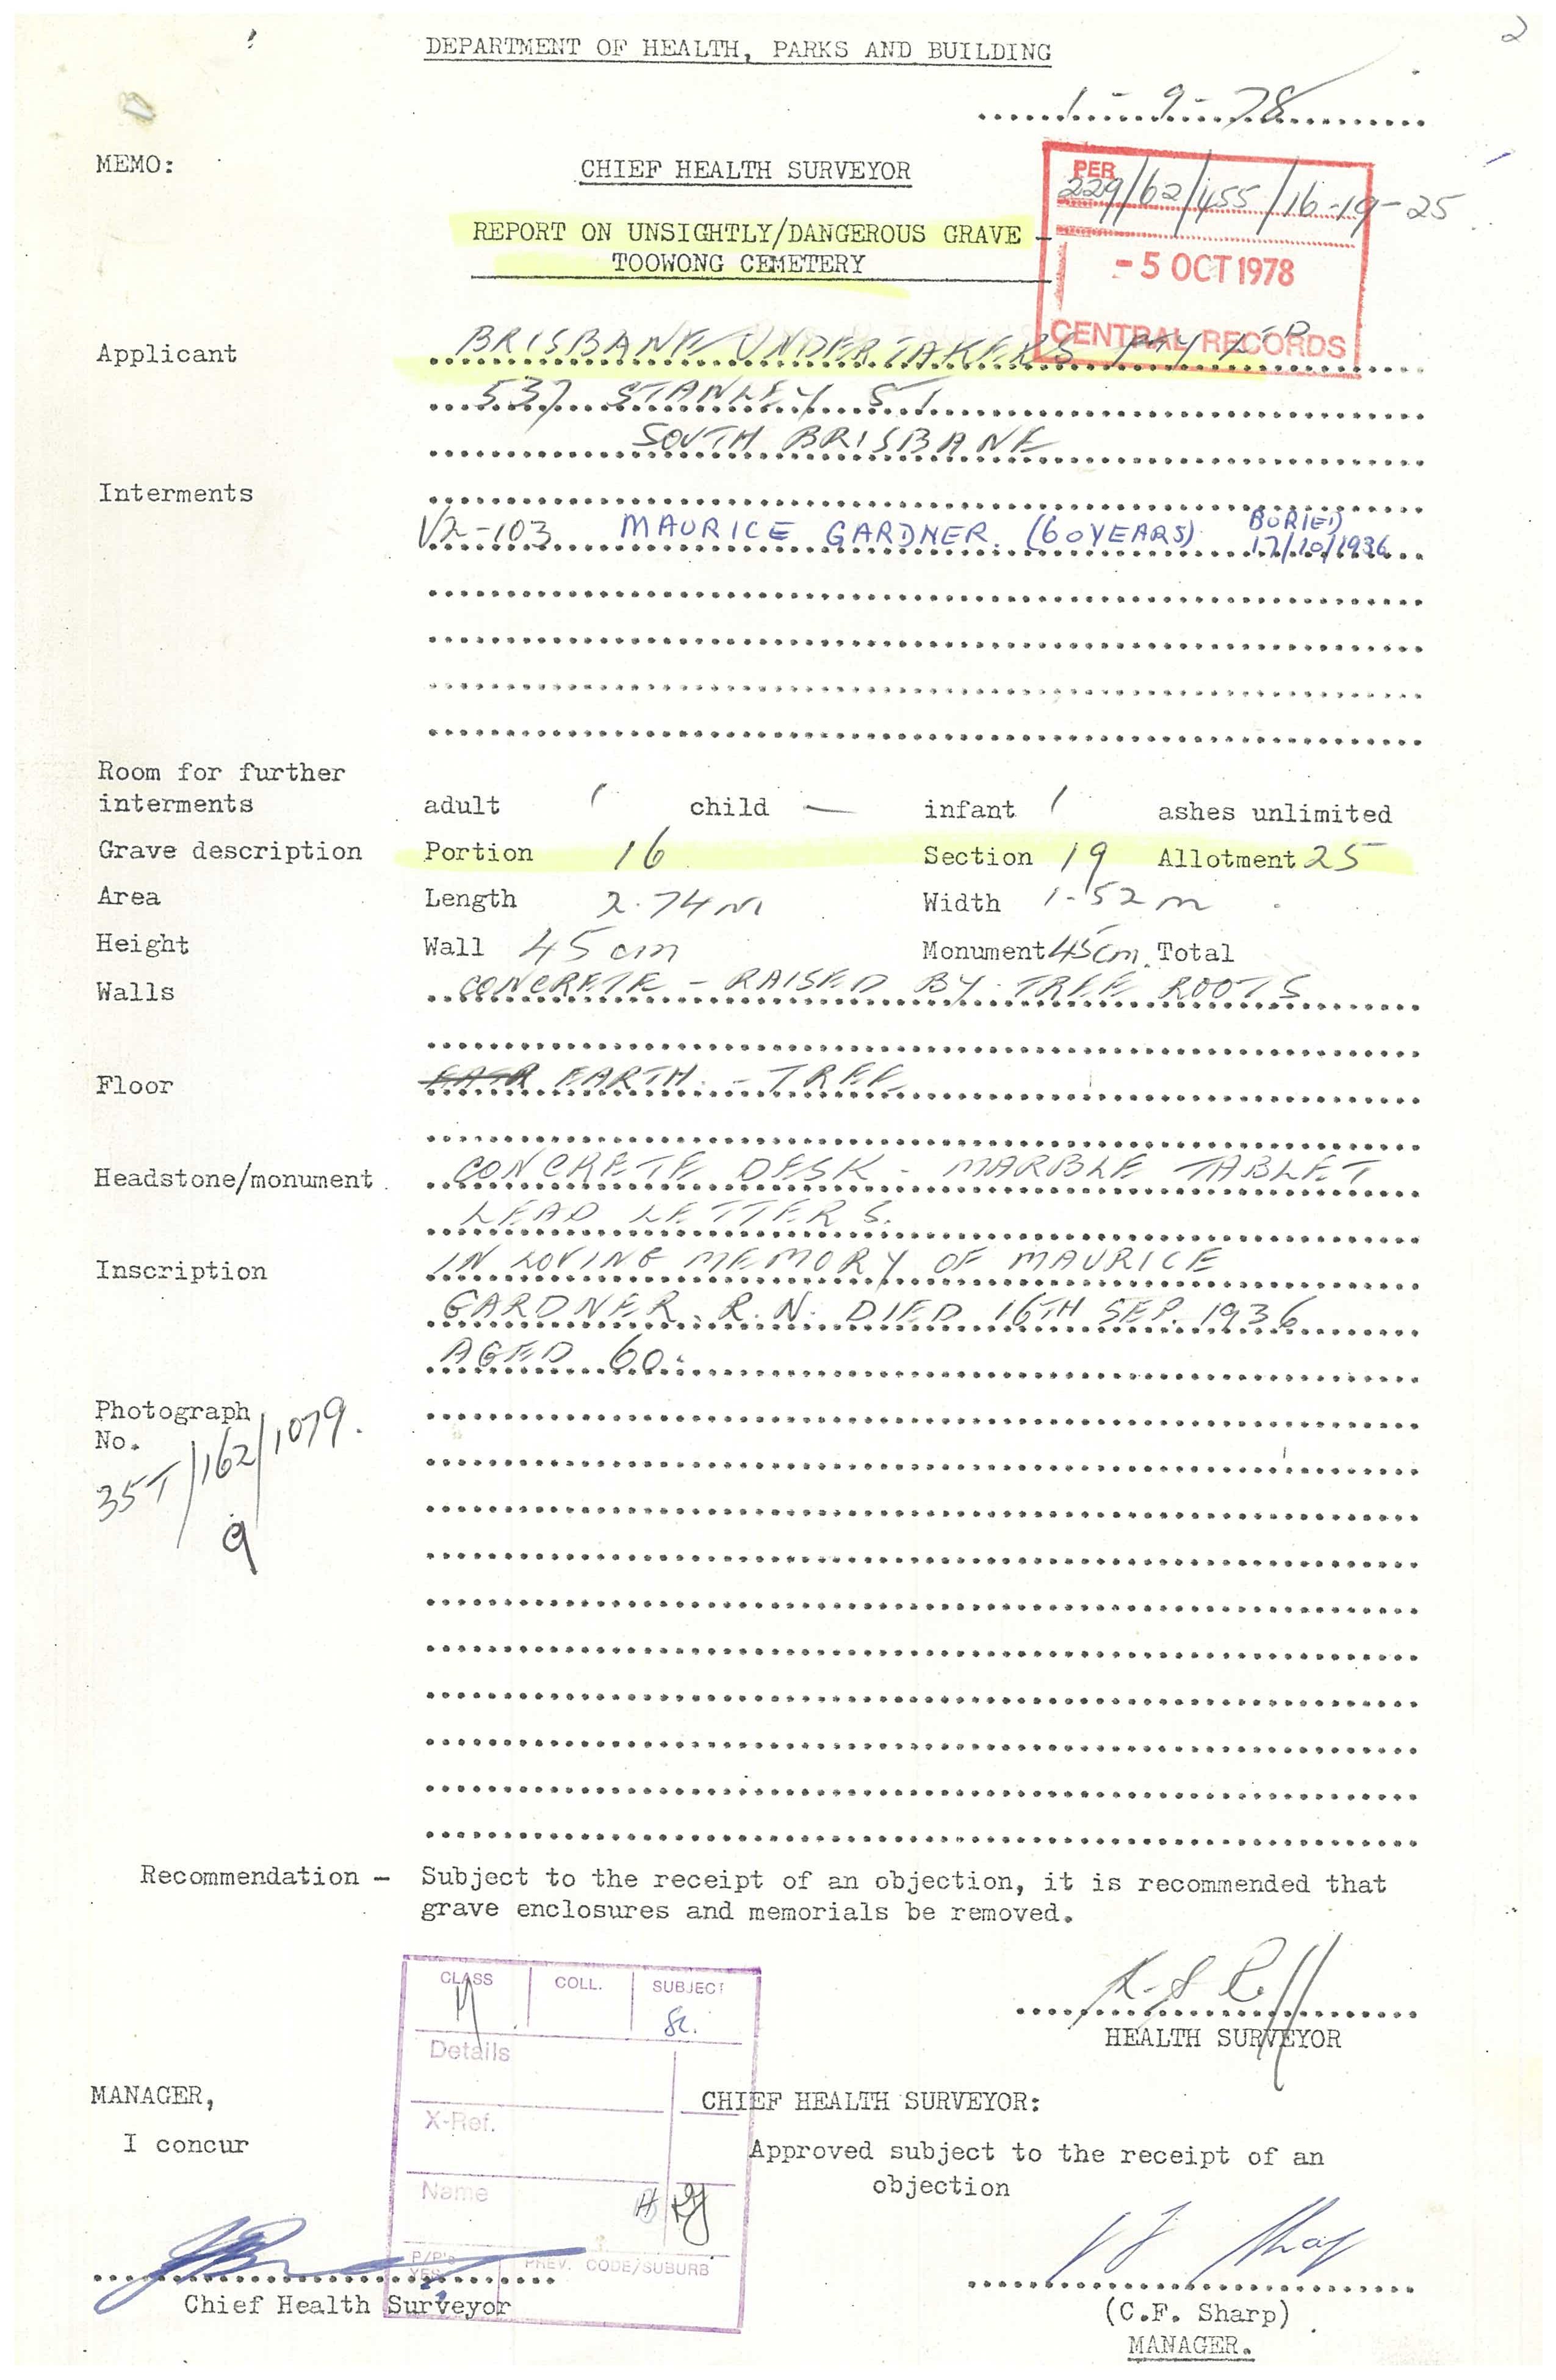 2
DEPARTMENT OF HEALTH, PARKS AND BUILDING
1-9-78
MEMO:
CHIEF HEALTH SURVEYOR
PER
229/62/455/16-19-25
REPORT ON UNSIGHTLY/DANGEROUS GRAVE -
TOOWONG CEMETERY
-5 OCT 1978
CENTRAL RECORDS
Applicant BRISBANE UNDERTAKERS PTY LTD
537 STANLEY ST
SOUTH BRISBANE
Interments
V2-103 MAURICE GARDNER. (60 YEARS) BURIED 17/10/1936
Room for further
interments adult 1 child — infant 1 ashes unlimited
Grave description Portion 16 Section 19 Allotment 25
Area Length 2.74m Width 1.52m
Height Wall 45cm Monument 45cm. Total
Walls CONCRETE - RAISED BY TREE ROOTS
Floor EARTH. - TREE
Headstone/monument CONCRETE DESK - MARBLE TABLET
LEAD LETTERS.
Inscription IN LOVING MEMORY OF MAURICE
GARDNER. R.N. DIED 16TH SEP. 1936
AGED 60.
Photograph
No.
35T/162/1079.
9
Recommendation - Subject to the receipt of an objection, it is recommended that
grave enclosures and memorials be removed.
CLASS COLL. SUBJECT
Details
HEALTH SURVEYOR
MANAGER,
CHIEF HEALTH SURVEYOR:
X-Ref.
I concur
Approved subject to the receipt of an
objection
Name
P/P's
YES
PREV. CODE/SUBURB
Chief Health Surveyor
(C.F. Sharp)
MANAGER.